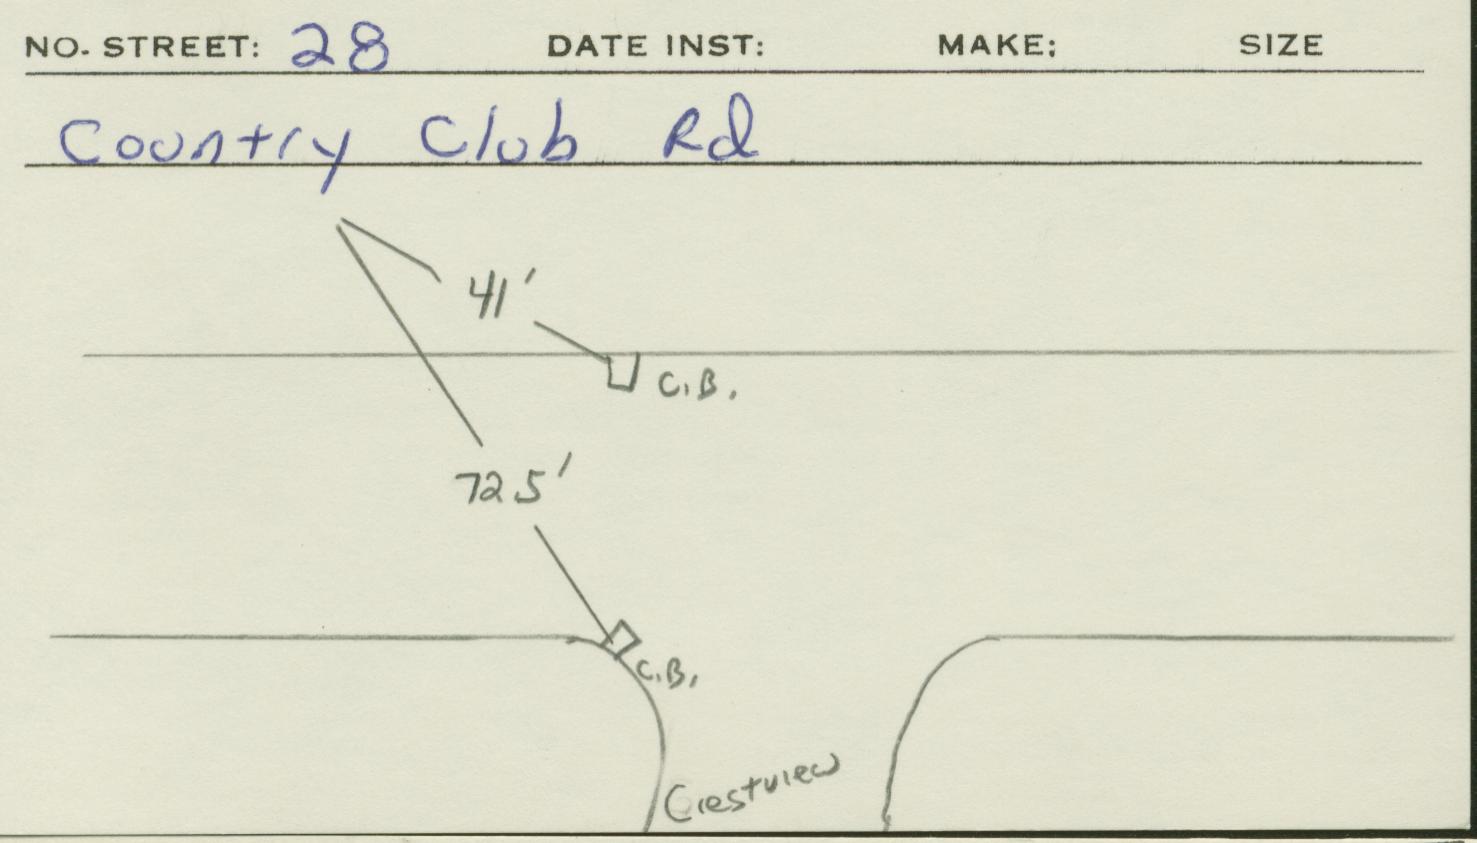 NO. STREET: 28 DATE INST: MAKE: SIZE
Country Club Rd
41'
C.B.
72.5'
C.B.
Crestview